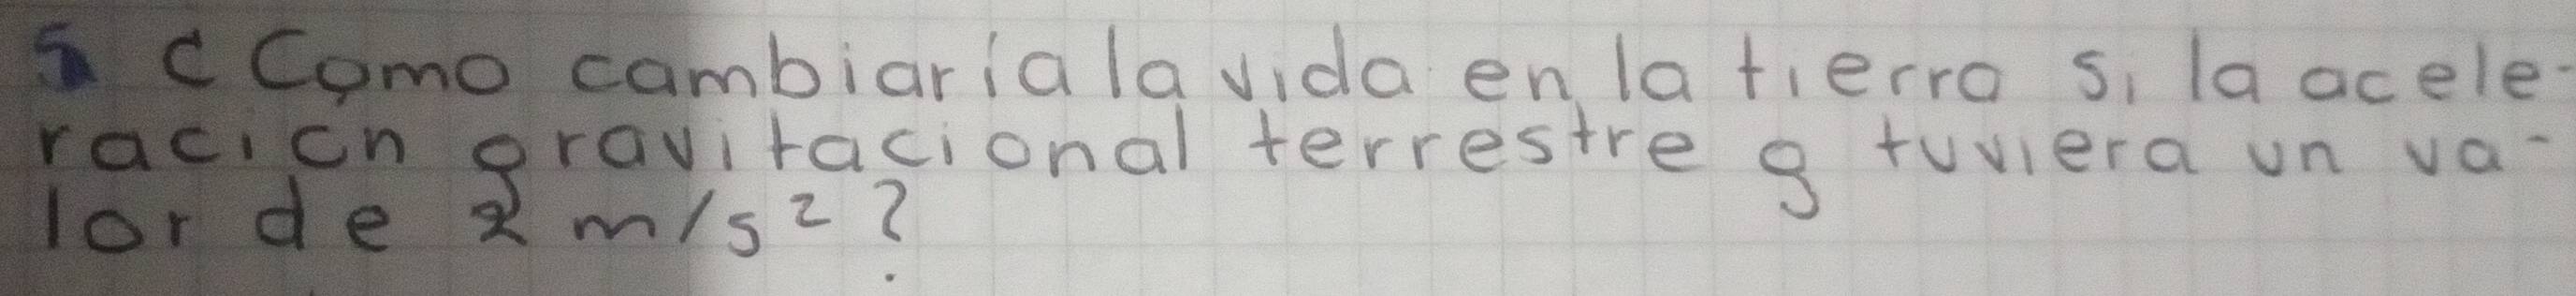 5 ¿Como cambiaria la vida en la tierra si la acele-
racion gravitacional terrestre g tuviera un va-
lor de 2 m/s²?